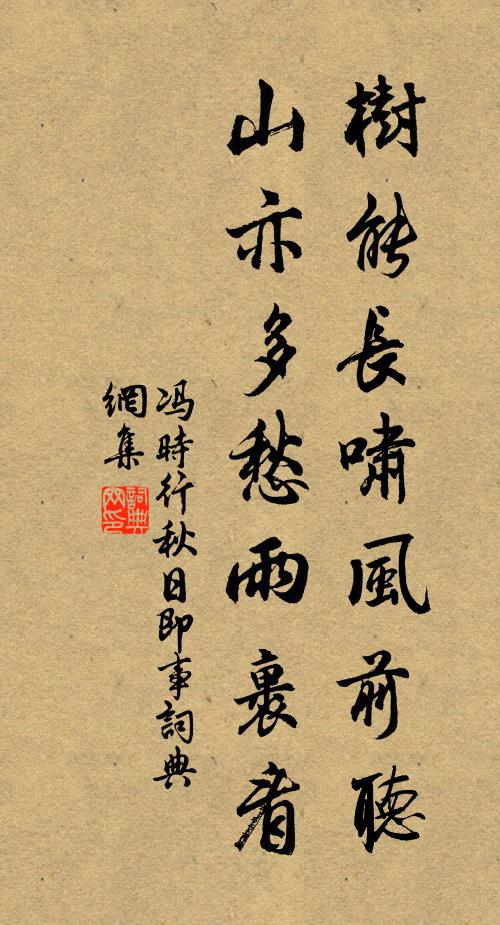 樹能長嘯風前聽
山亦多愁雨裏看
冯時行秋日即事詞典
網集
詞典
网印